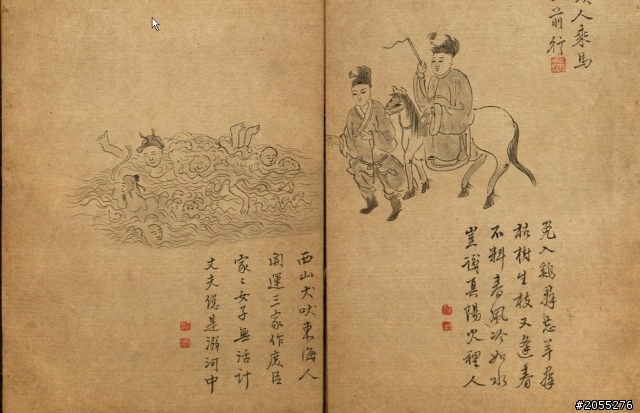 人乘馬
前行
入鷄群忘羊群
枯樹生枝又逢春
不料春風冷如水
豈真陽火裡人
西山犬吠東海人
開運三家作臣
家〻女子無活計
丈夫是溺河中
#2055276